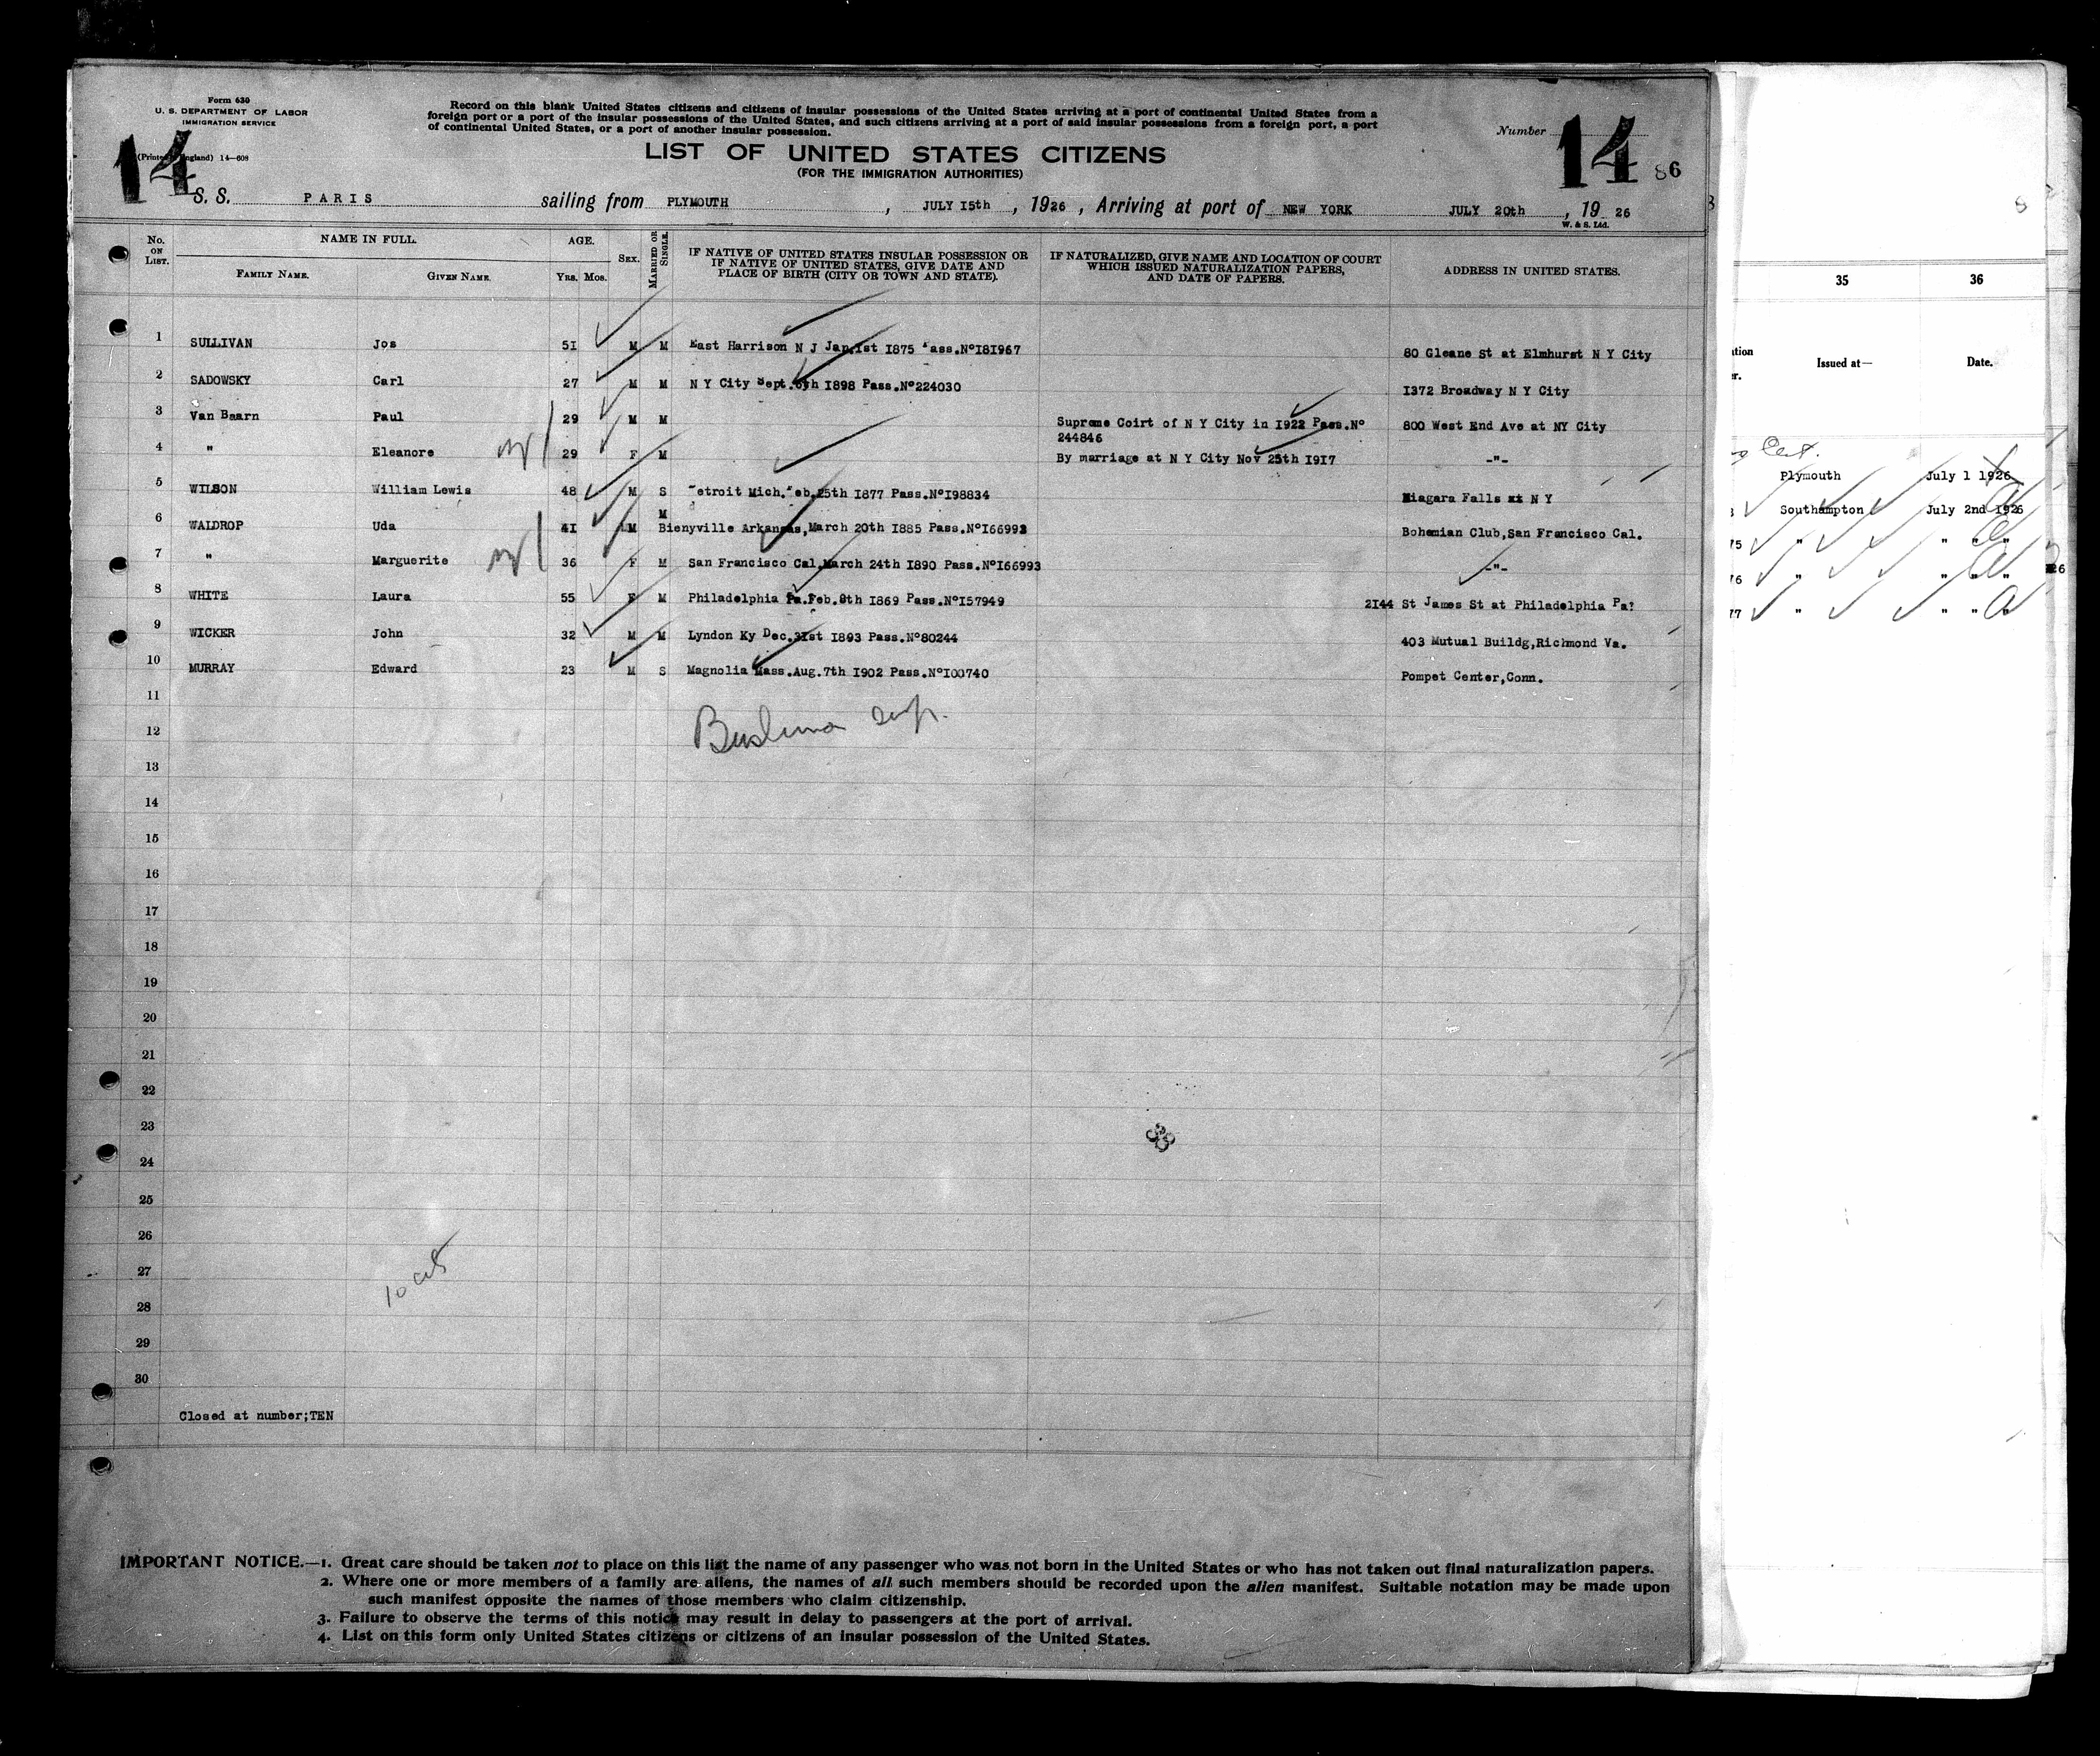 Form 630
U. S. DEPARTMENT OF LABOR
IMMIGRATION SERVICE
(Printed England) 14—608
14
Record on this blank United States citizens and citizens of insular possessions of the United States arriving at a port of continental United States from a
foreign port or a port of the insular possessions of the United States, and such citizens arriving at a port of said insular possessions from a foreign port, a port
of continental United States, or a port of another insular possession.
LIST OF UNITED STATES CITIZENS
(FOR THE IMMIGRATION AUTHORITIES)
Number 14 86
S. S. PARIS sailing from PLYMOUTH , JULY I5th , 1926 , Arriving at port of NEW YORK JULY 20th , 19 26
W. & S. Ltd.
No. ON LIST. NAME IN FULL. AGE. SEX. MARRIED OR SINGLE. IF NATIVE OF UNITED STATES INSULAR POSSESSION OR IF NATIVE OF UNITED STATES, GIVE DATE AND PLACE OF BIRTH (CITY OR TOWN AND STATE). IF NATURALIZED, GIVE NAME AND LOCATION OF COURT WHICH ISSUED NATURALIZATION PAPERS, AND DATE OF PAPERS. ADDRESS IN UNITED STATES.
FAMILY NAME. GIVEN NAME. YRS. MOS.
1 SULLIVAN Jos 5I M M East Harrison N J Jan.Ist I875 Pass.N°I8I967 80 Gleane St at Elmhurst N Y City
2 SADOWSKY Carl 27 M M N Y City Sept.6th I898 Pass.N°224030 I372 Broadway N Y City
3 Van Baarn Paul 29 M M Supreme Coirt of N Y City in I922 Pass.N° 800 West End Ave at NY City
244846
4 " Eleanore 29 F M By marriage at N Y City Nov 25th I9I7 -"-
5 WILSON William Lewis 48 M S Detroit Mich. Feb.25th I877 Pass.N°I98834 Niagara Falls N Y
6 WALDROP Uda 4I M M Bienyville Arkansas,March 20th I885 Pass.N°I66993 Bohemian Club,San Francisco Cal.
7 " Marguerite 36 F M San Francisco Cal.March 24th I890 Pass.N°I66993 -"-
8 WHITE Laura 55 F M Philadelphia Pa.Feb.9th I869 Pass.N°I57949 2I44 St James St at Philadelphia Pa?
9 WICKER John 32 M M Lyndon Ky Dec.3Ist I893 Pass.N°80244 403 Mutual Buildg,Richmond Va.
10 MURRAY Edward 23 M S Magnolia Mass.Aug.7th I902 Pass.N°I00740 Pompet Center,Conn.
11
12
13
14
15
16
17
18
19
20
21
22
23
24
25
26
27
28
29
30
Closed at number;TEN
IMPORTANT NOTICE.—1. Great care should be taken not to place on this list the name of any passenger who was not born in the United States or who has not taken out final naturalization papers.
2. Where one or more members of a family are aliens, the names of all such members should be recorded upon the alien manifest. Suitable notation may be made upon
such manifest opposite the names of those members who claim citizenship.
3. Failure to observe the terms of this notice may result in delay to passengers at the port of arrival.
4. List on this form only United States citizens or citizens of an insular possession of the United States.
35 36
Issued at— Date.
Plymouth July 1 1926
Southampton July 2nd 1926
75 " " " "
76 " " " "
77 " " " "